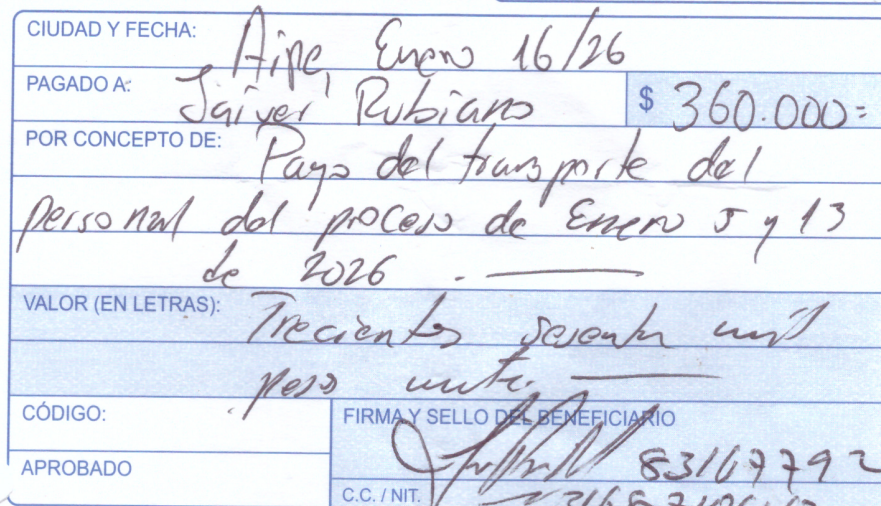 CIUDAD Y FECHA: Aipe, Enero 16/26
PAGADO A: Jaiver Rubiano $ 360.000=
POR CONCEPTO DE: Pago del transporte del
personal del proceso de Enero 5 y 13
de 2026.
VALOR (EN LETRAS): Trecientos sesenta mil
pesos mcte.
CÓDIGO: FIRMA Y SELLO DEL BENEFICIARIO
APROBADO 83167792
C.C. / NIT.